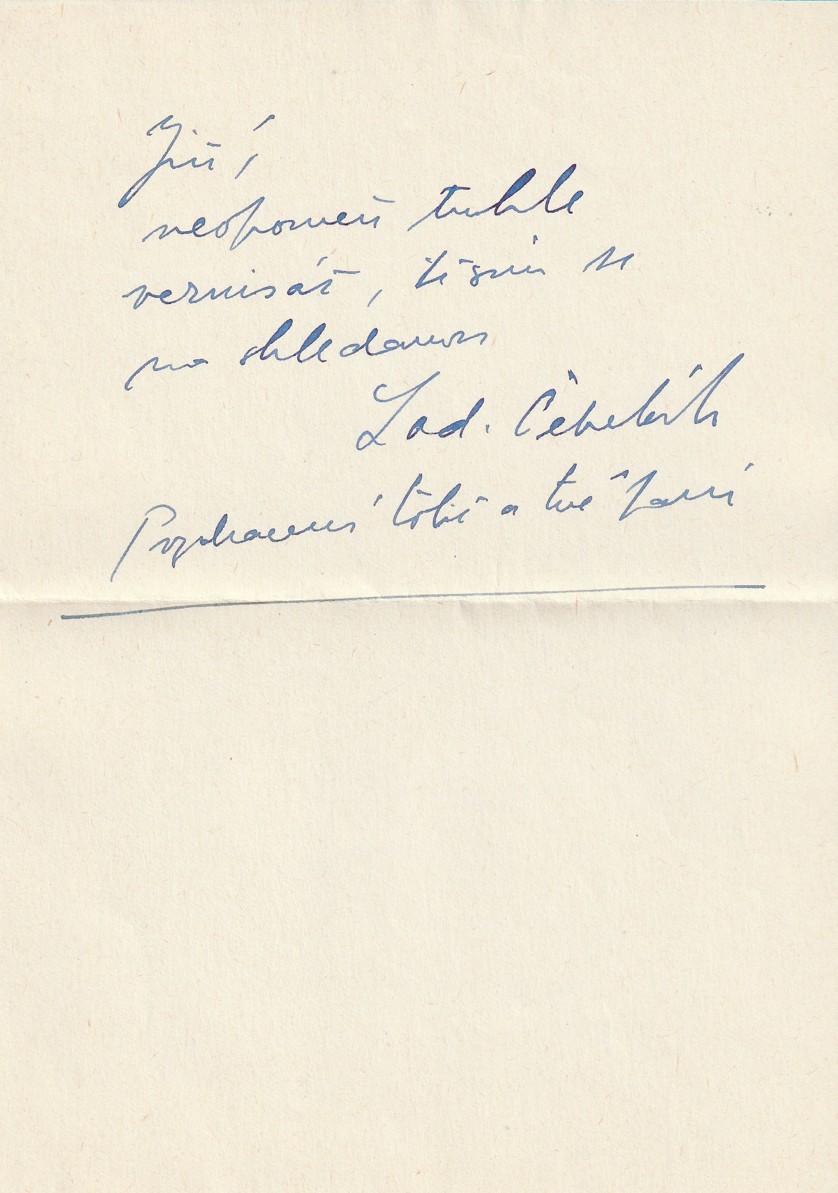 Jiří,
neopomeň tuhle
vernisáž, těším se
na shledanou
Lad.
Pozdravuji tobě a tvé paní